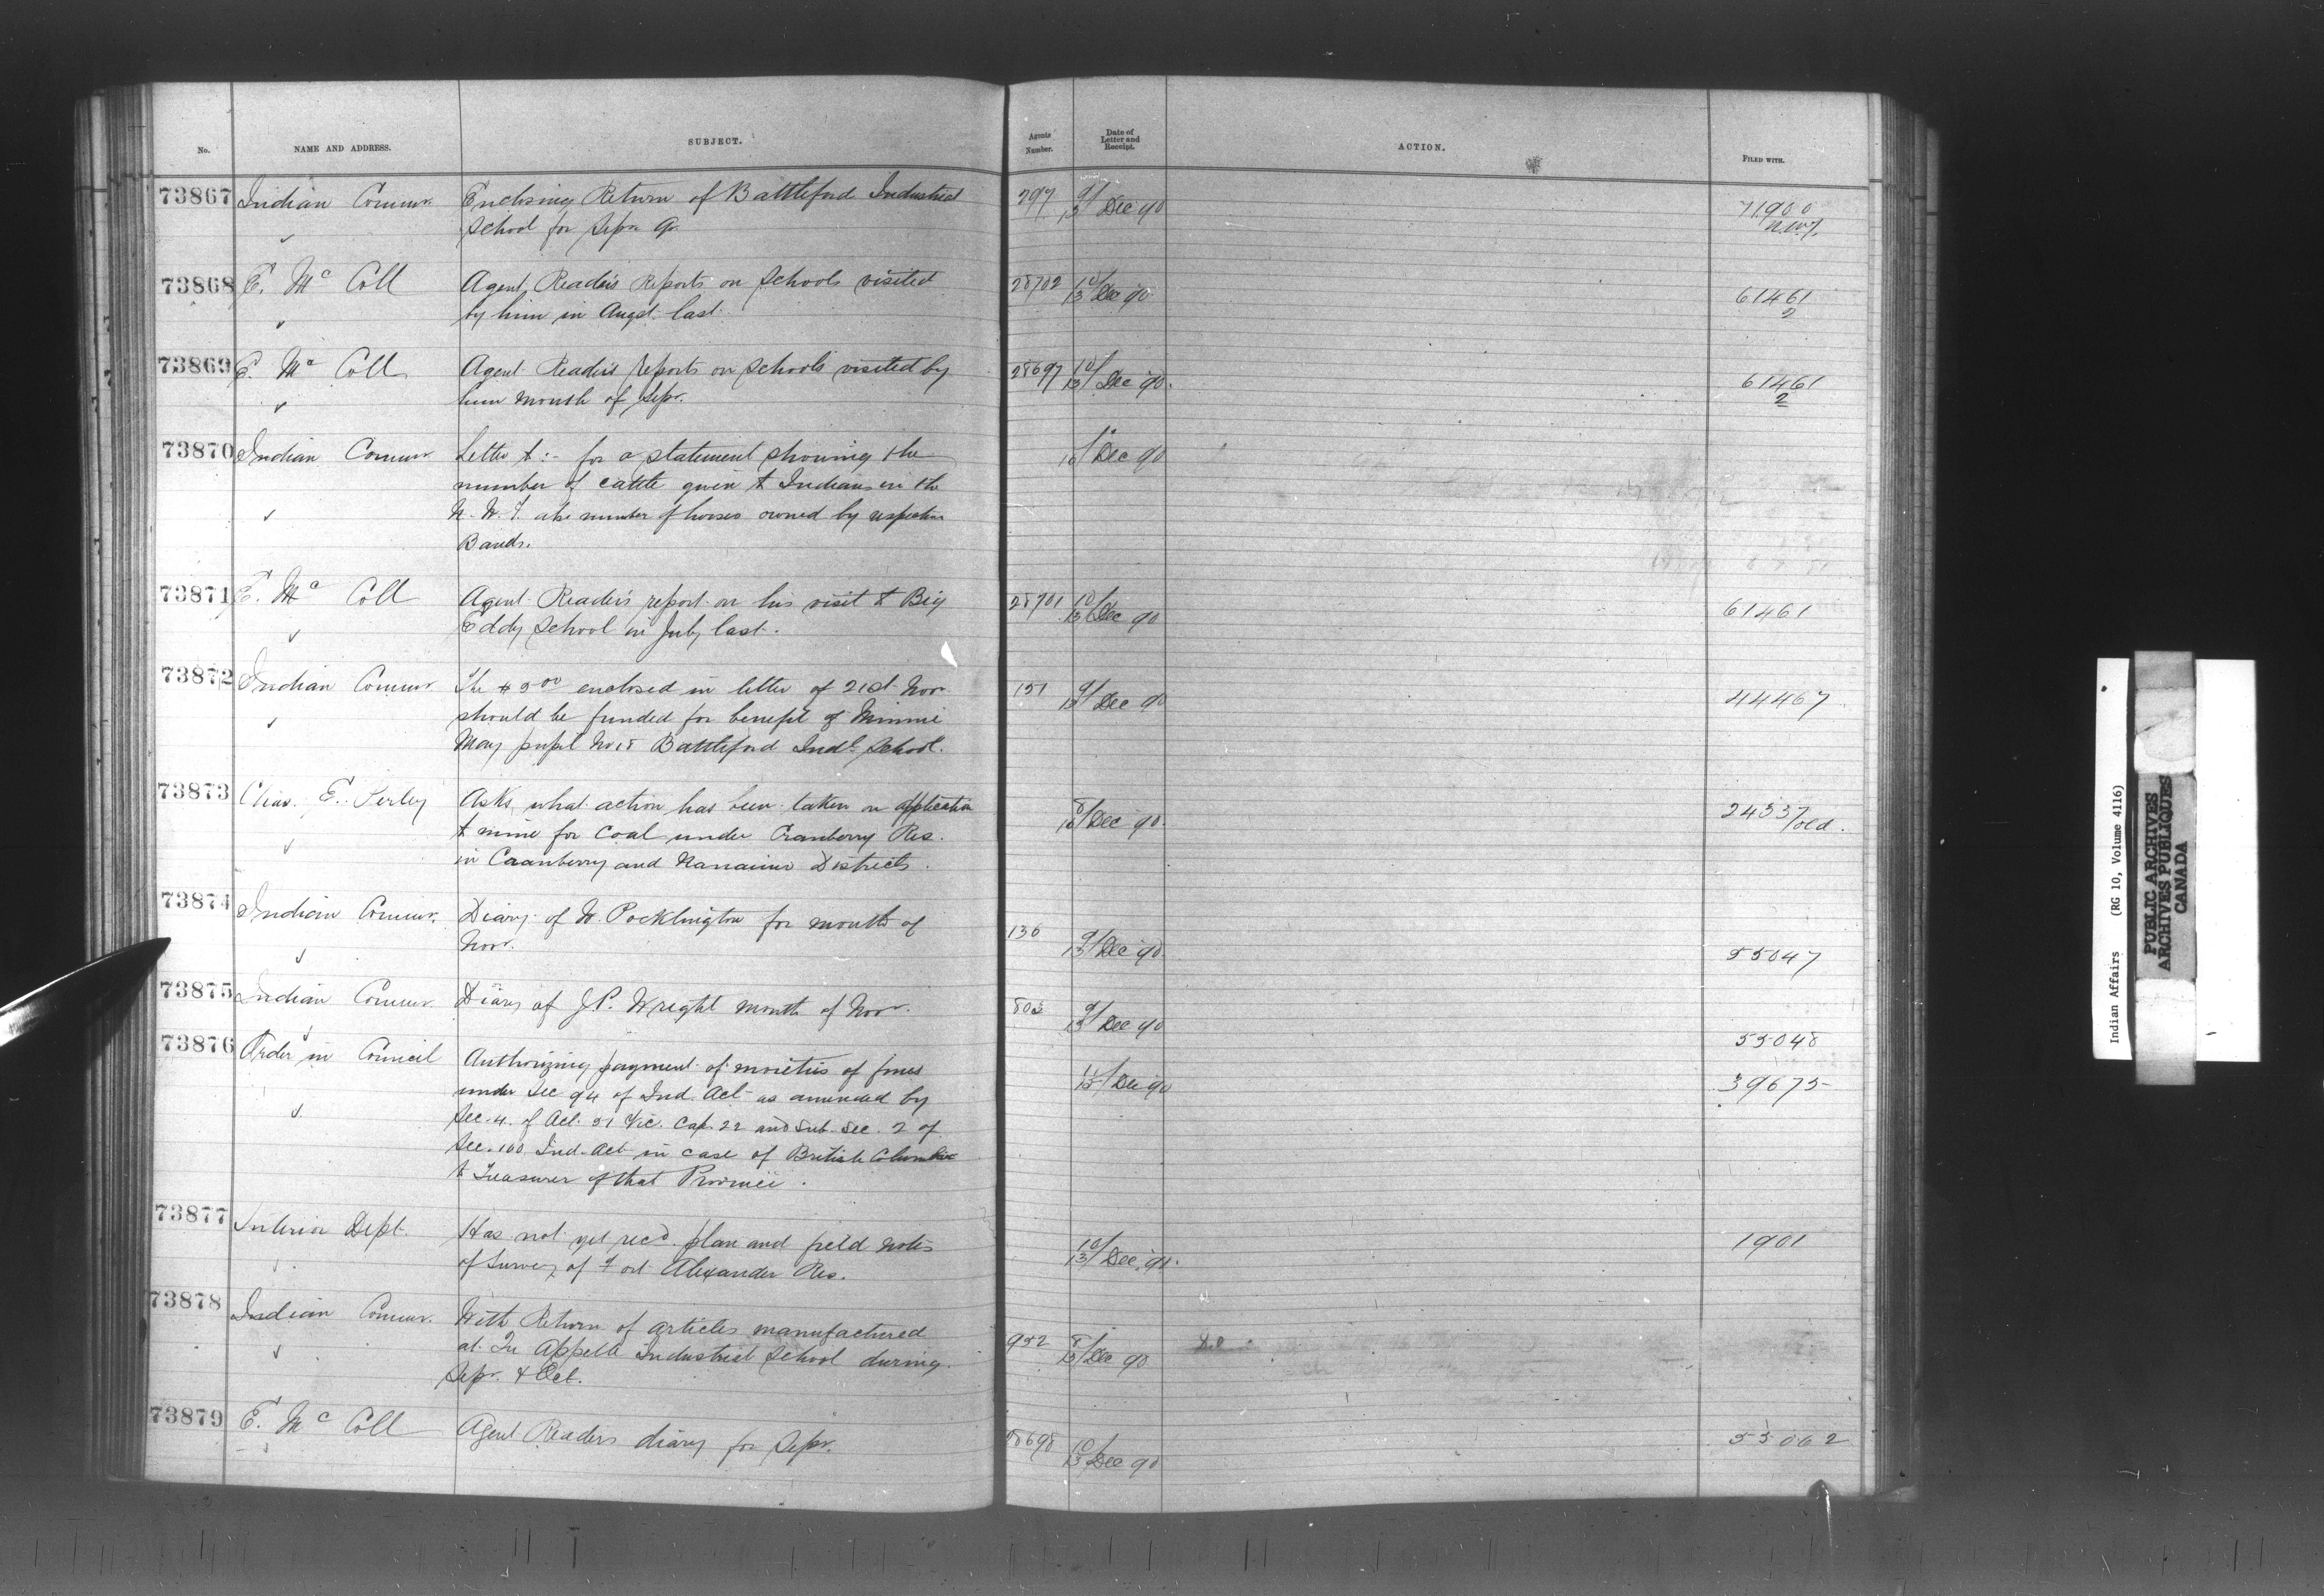 No. NAME AND ADDRESS. SUBJECT. Agents Number. Date of Letter and Receipt. ACTION. FILED WITH.
73867 Indian Commr. Enclosing Return of Battleford Industrial 797 9/13 Dec 90 71900
School for Sepr Qr. N.W.T.
73868 E. McColl Agent Reader's Reports on Schools visited 28702 10/13 Dec 90 61461
by him in Augst. last. 2
73869 E. McColl Agent Reader's reports on schools visited by 28697 10/13 Dec 90. 61461
him month of Sepr. 2
73870 Indian Commr Letter to :- for a statement showing the Dec 90
number of cattle given to Indians in the
N. W. T. also number of horses owned by respective
Bands.
73871 E. McColl Agent Reader's report on his visit to Big 28701 10/13 Dec 90 61461
Eddy School in July last.
73872 Indian Commr The $5.00 enclosed in letter of 21st Novr 151 9/13 Dec 90 44467
should be funded for benefit of Minnie
May pupil No 18 Battleford Indl. School.
73873 Chas. E. Perley Asks what action has been taken on application Dec 90. 24537/old.
to mine for Coal under Cranberry Res.
in Cranberry and Nanaimo Districts.
73874 Indian Commr. Diary of W. Pocklington for month of 136 9/13 Dec 90. 55047
Novr.
73875 Indian Commr Diary of J.P. Wright month of Novr. 9/13 Dec 90 55048
73876 Order in Council Authorizing payment of moieties of fines Dec 90 39675
under Sec 94 of Ind. Act as amended by
Sec. 4. of Act. 51 Vic. Cap. 22 and Sub. Sec. 2 of
Sec. 100 Ind. Act in case of British Columbia
to Treasurer of that Province.
73877 Interior Dept. Has not yet recd. plan and field notes 10/13 Dec. 90. 1901
of Survey of Fort Alexander Res.
73878 Indian Commr. With Return of articles manufactured 952 8/13 Dec 90
at Qu'Appelle Industrial School during
Sepr. & Oct.
73879 E. McColl Agent Readers diary for Sepr. 28698 10/13 Dec 90 55062
Indian Affairs (RG 10, Volume 4116)
PUBLIC ARCHIVES
ARCHIVES PUBLIQUES
CANADA